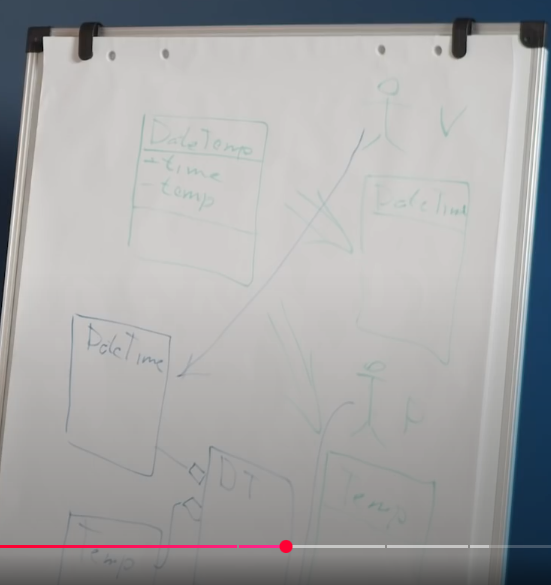 DateTemp
+ time
- temp
V
DateTime
DateTime
DT
Temp
Temp